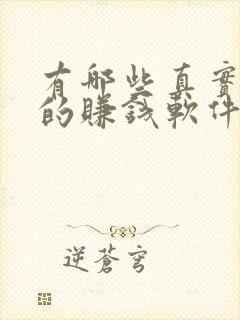 有哪些真實
的賺錢軟件
逆蒼穹